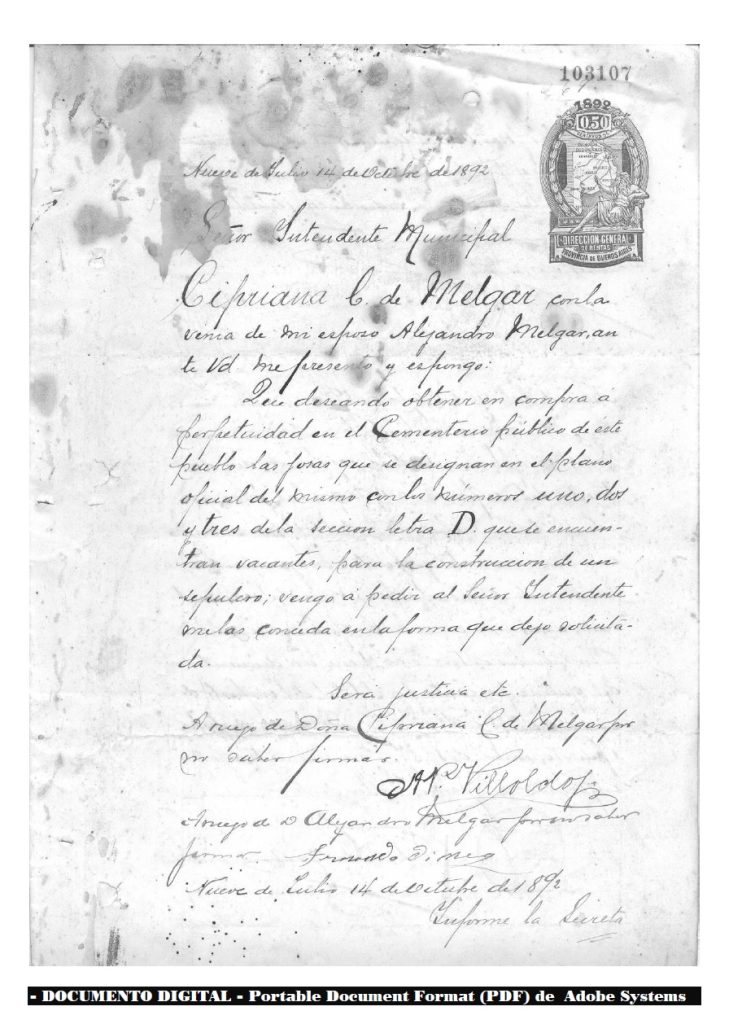 103107
1892
0.50
DIRECCION GENERAL
DE RENTAS
PROVINCIA DE BUENOS AIRES
Nueve de Julio 14 de Octubre de 1892
Señor Intendente Municipal
Cipriana C. de Melgar con la
venia de mi esposo Alejandro Melgar, an
te Vd me presento y espongo:
Que deseando obtener en compra á
perpetuidad en el Cementerio público de éste
pueblo las fosas que se designan en el plano
oficial del mismo con los números uno, dos
y tres de la seccion letra D. que se encuen-
tran vacantes, para la construccion de un
sepulcro; vengo á pedir al Señor Intendente
me las conceda en la forma que dejo solicita-
da.
Sera justicia etc.
A ruego de Doña Cipriana C. de Melgar por
no saber firmar.
Villoldo
A ruego de D Alejandro Melgar por no saber
firmar.
Nueve de Julio 14 de Octubre de 1892
Informe la Secreta
- DOCUMENTO DIGITAL - Portable Document Format (PDF) de Adobe Systems